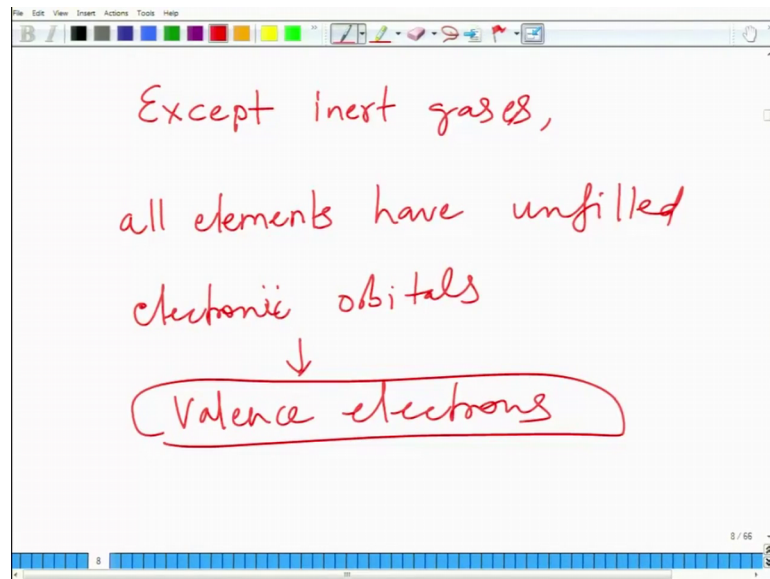 File Edit View Insert Actions Tools Help
B I
Except inert gases,
all elements have unfilled
electronic orbitals
Valence electrons
8 / 66
8